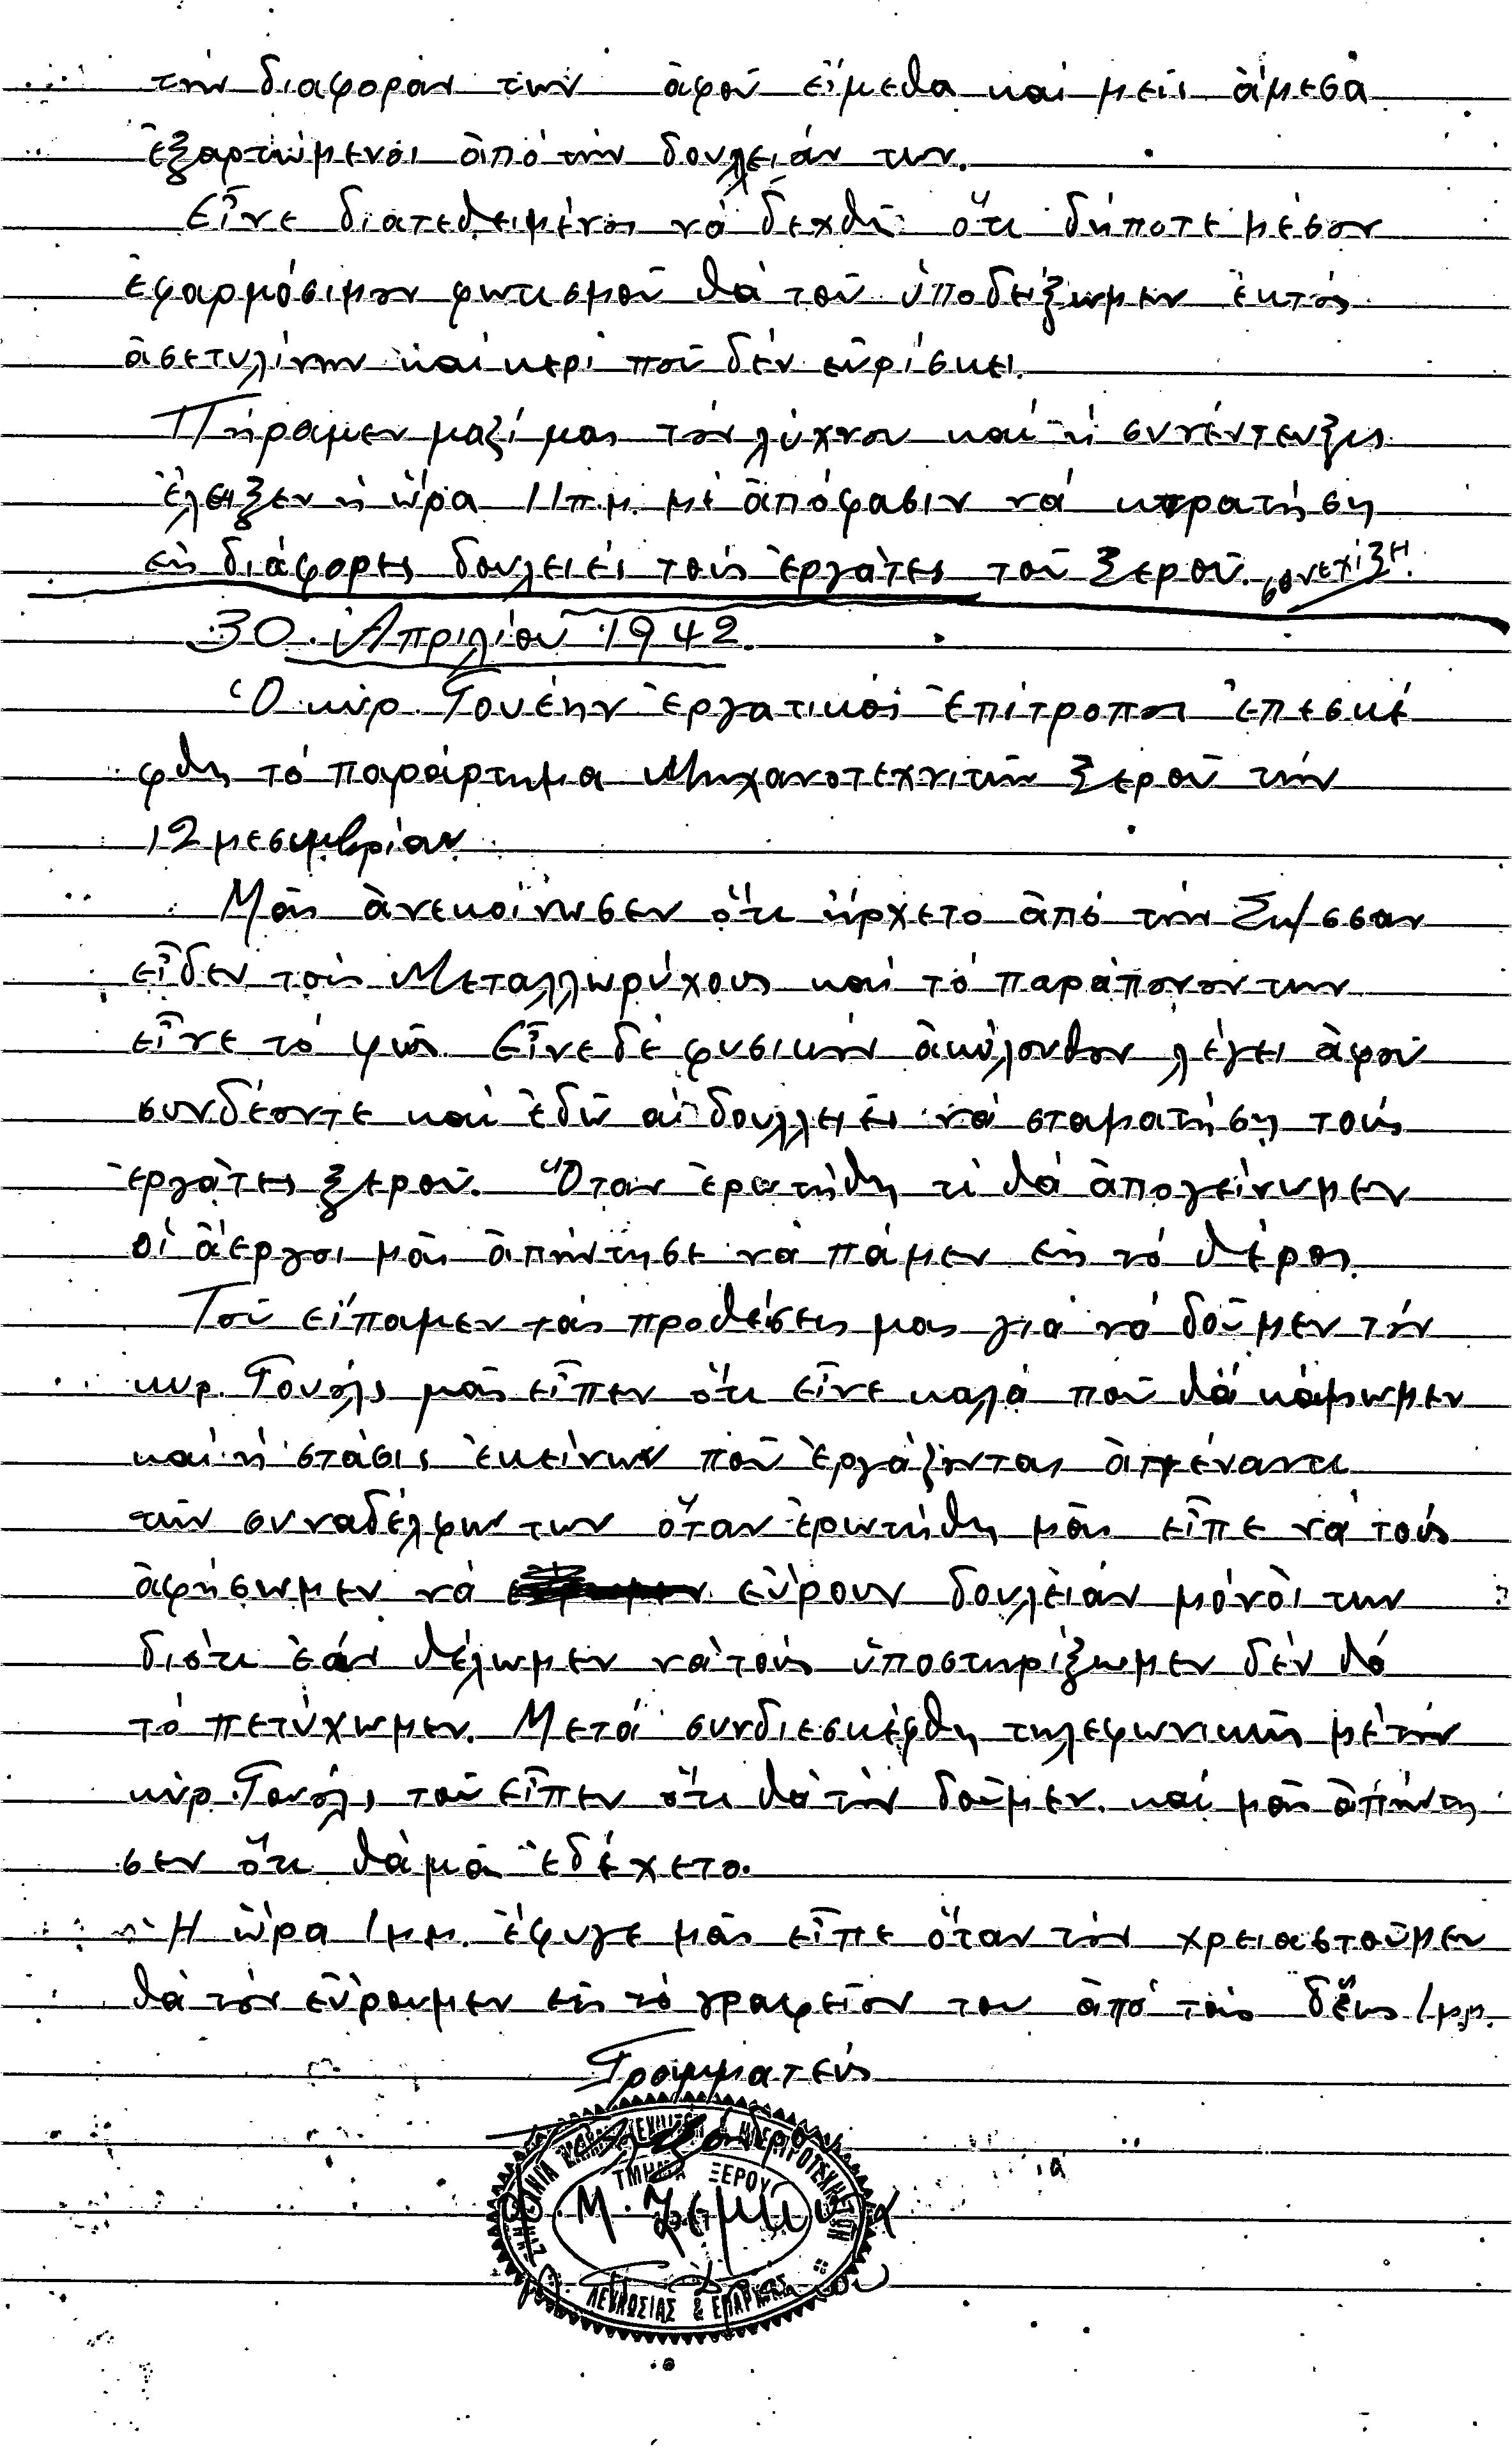 τήν διαφοράν των ἀφοῦ εἴμεθα καί μεῖς ἀμεσα
ἐξαρτώμενοι ἀπό τήν δουλειάν των.
Εἶνε διατεθειμένος νά δεχθῆ ὅτι δήποτε μέσον
ἐφαρμόσιμον φωτισμοῦ θά τοῦ ὑποδείξωμεν ἐκτός
ἀσετυλίνην καί κερί ποῦ δέν εὑρίσκει.
Πήραμεν μαζί μας τόν λύχνον καί ἡ συνέντευξις
ἔλειξεν ἡ ὥρα 11 π.μ. μέ ἀπόφασιν νά κρατήση
εἰς διάφορες δουλειές τούς ἐργάτες τοῦ Ξεροῦ. συνεχίζη.
30. Απριλίου 1942.
Ὁ κύρ. Γουέην ἐργατικός ἐπίτροπος ἐπεσκέ
φθη τό παράρτημα Μηχανοτεχνιτῶν Ξεροῦ τήν
12 μεσημβρίαν
Μᾶς ἀνεκοίνωσεν ὅτι ἤρχετο ἀπό τήν Σκ/σσαν
εἶδεν τούς Μεταλλωρύχους καί τό παράπονον των
εἶνε τό φῶς. Εἶνε δέ φυσικόν ἀκόλουθον λέγει ἀφοῦ
συνδέοντε καί ἐδῶ αἱ δουλλειές νά σταματήση τούς
ἐργάτες Ξεροῦ. Ὅταν ἐρωτήθη τί θά ἀπογείνωμεν
οἱ ἄεργοι μᾶς ἀπήντησε νά πάμεν εἰς τό θέρος.
Τοῦ εἴπαμεν τάς προθέσεις μας γιά νά δοῦμεν τόν
κυρ. Γουόλς μᾶς εἶπεν ὅτι εἶνε καλά ποῦ θά κάμωμεν
καί ἡ στάσις ἐκείνων ποῦ ἐργάζονται ἀπέναντι
τῶν συναδέλφων των ὅταν ἐρωτήθη μᾶς εἶπε νά τούς
ἀφήσωμεν νά εὕρουν δουλειάν μόνοι των
διότι ἐάν θέλωμεν νά τούς ὑποστηρίξωμεν δέν θά
τό πετύχωμεν. Μετά συνδιεσκέφθη τηλεφωνικῶς μέ τόν
κύρ. Γουόλς τοῦ εἶπεν ὅτι θά τόν δοῦμεν. καί μᾶς ἀπήντη
σεν ὅτι θά μᾶς ἐδέχετο.
Ἡ ὥρα 1 μμ. ἔφυγε μᾶς εἶπε ὅταν τόν χρειαστοῦμεν
θά τόν εὕρουμεν εἰς τό γραφεῖον του ἀπό τάς δέκα 1 μμ.
Γραμματεύς
ΤΜΗΜΑ ΞΕΡΟΥ
ΛΕΥΚΩΣΙΑΣ & ΕΠΑΡΧΙΑΣ